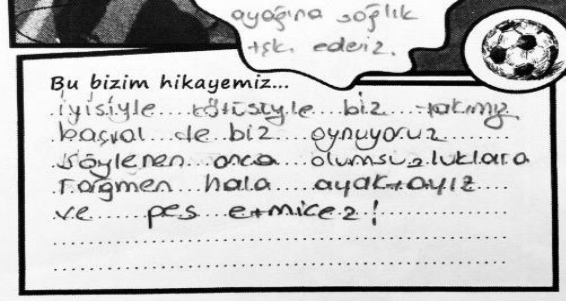 ayağına sağlık
tşk ederiz.
Bu bizim hikayemiz...
iyisiyle kötüsüyle biz takımız
başrol de biz oynuyoruz
söylenen onca olumsuzluklara
rağmen hala ayaktayız
ve pes etmicez!